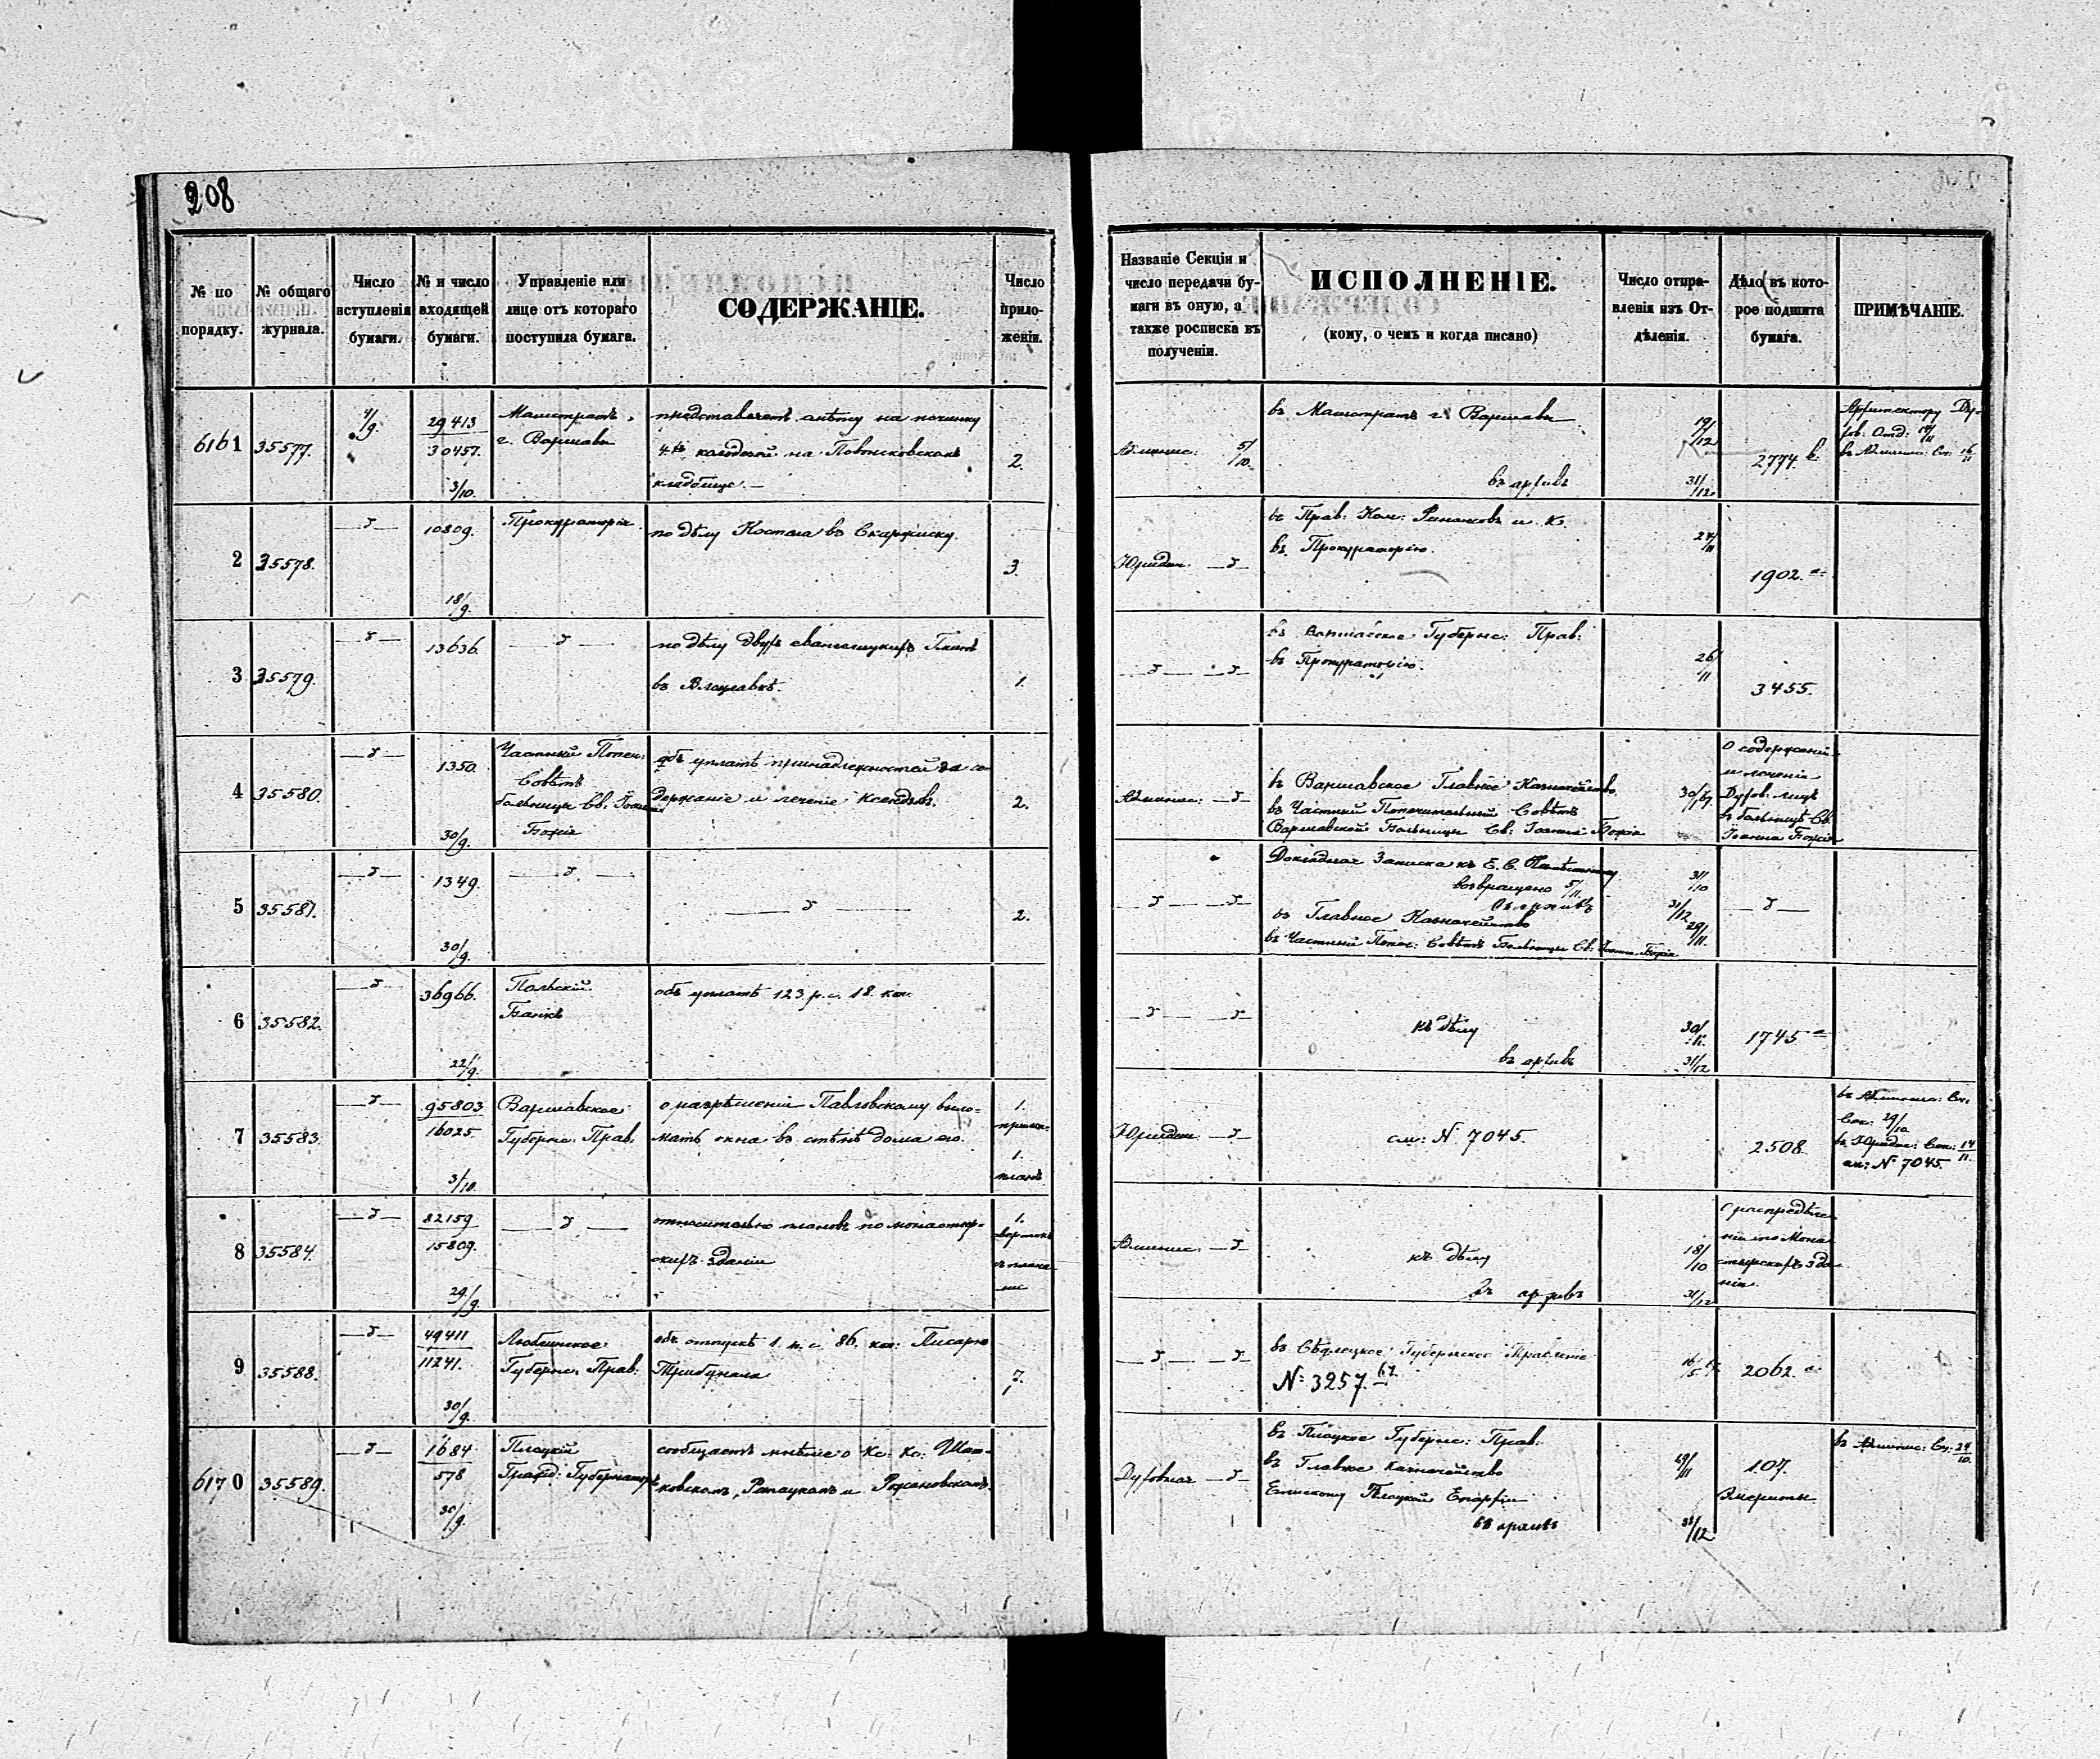 208
№ по порядку.
№ общаго журнала.
Число вступленія бумаги.
№ и число входящей бумаги.
Управленіе или лице отъ котораго поступила бумага.
СОДЕРЖАНІЕ.
Число приложеній.
Названіе Секціи и число передачи бумаги въ оную, а также росписка въ полученіи.
ИСПОЛНЕНІЕ.
(кому, о чемъ и когда писано)
Число отправленія изъ Отдѣленія.
Дѣло въ которое подшита бумага.
ПРИМѢЧАНІЕ.
6161
35577.
4/9.
29413
30457.
3/10.
Магистратъ
г. Варшавы
представляетъ смѣту на починку
4хъ колодезей на Повонсковскомъ
кладбище.—
2.
Админис: 5/10.
въ Магистратъ г. Варшавы
въ архивъ
19/12
31/12.
2774.
2
35578.
10809.
18/9.
Прокураторія
по дѣлу Костела въ Скаржиску.
3.
Юридич.
въ Прав: Ком: Финансовъ
въ Прокураторію.
27/11
1902.
3
35579.
13636.
по дѣлу двухъ евангелицкихъ
въ Влоцлавкѣ.
1.
въ Варшавское Губернс: Прав:
въ Прокураторію.
26/11
3455.
4
35580.
1350.
30/9.
Частный Попеч:
Совѣтъ
больницы Св. Іоанна
Божія
объ уплатѣ принадлежностей за со-
держаніе и леченіе Ксендзовъ.
2.
Админис:
въ Варшавское Главное Казначейство
въ Частный Попечительный Совѣтъ
Варшавской Больницы Св: Іоанна Божія
О содержаніи
и леченіи
Духов: лицъ
въ больницѣ Св.
Іоанна Божія
5
35581.
1349.
30/9.
2.
Докладная Записка къ Е. С. Намѣстнику
возвращено 5/11.
въ архивъ
въ Главное Казначейство
въ Частный Попеч: Совѣтъ Больницы Св: Іоанна Божія
31/10
31/12
29/11.
6
35582.
36966.
22/9.
Польскій
Банкъ
объ уплатѣ 123 р. с. 18. коп.
къ дѣлу
въ архивъ
30/11.
31/12
1745
7
35583.
95803
16025.
3/10.
Варшавское
Губернс. Прав.
о разрѣшеніи Павловскому выло-
мать окна въ стѣнѣ дома его.
1.
1.
планъ
Юридич.
см: № 7045.
2508.
въ Админис: Сек:
29/10
въ Юридич: Сек: 14/11.
см: № 7045.
8
35584.
82159
15809.
29/9.
относительно плановъ по монастыр-
скихъ зданій
1.
Админис:
къ дѣлу
въ архивъ
18/10
31/12
О распредѣле-
ніи по Мона-
стырскихъ зда-
нія.
9
35588.
49411
11241.
30/9.
Люблинское
Губернс. Прав.
объ отпускѣ 1. р. с. 86. коп: Писарю
Трибунала
7.
въ Сѣдлецкое Губернское Правленіе
№ 3257. 67.
2062.
6170
35589.
1684
578
30/9.
Плоцкій
Гражд: Губернаторъ
сообщаетъ мнѣніе о Кс: Кс:
Духовная
въ Плоцкое Губернс: Прав:
въ Главное Казначейство
Епископу Плоцкой Епархіи
въ архивъ
29/11
31/12
107.
Эмериты
въ Админис: Сек: 24/10.